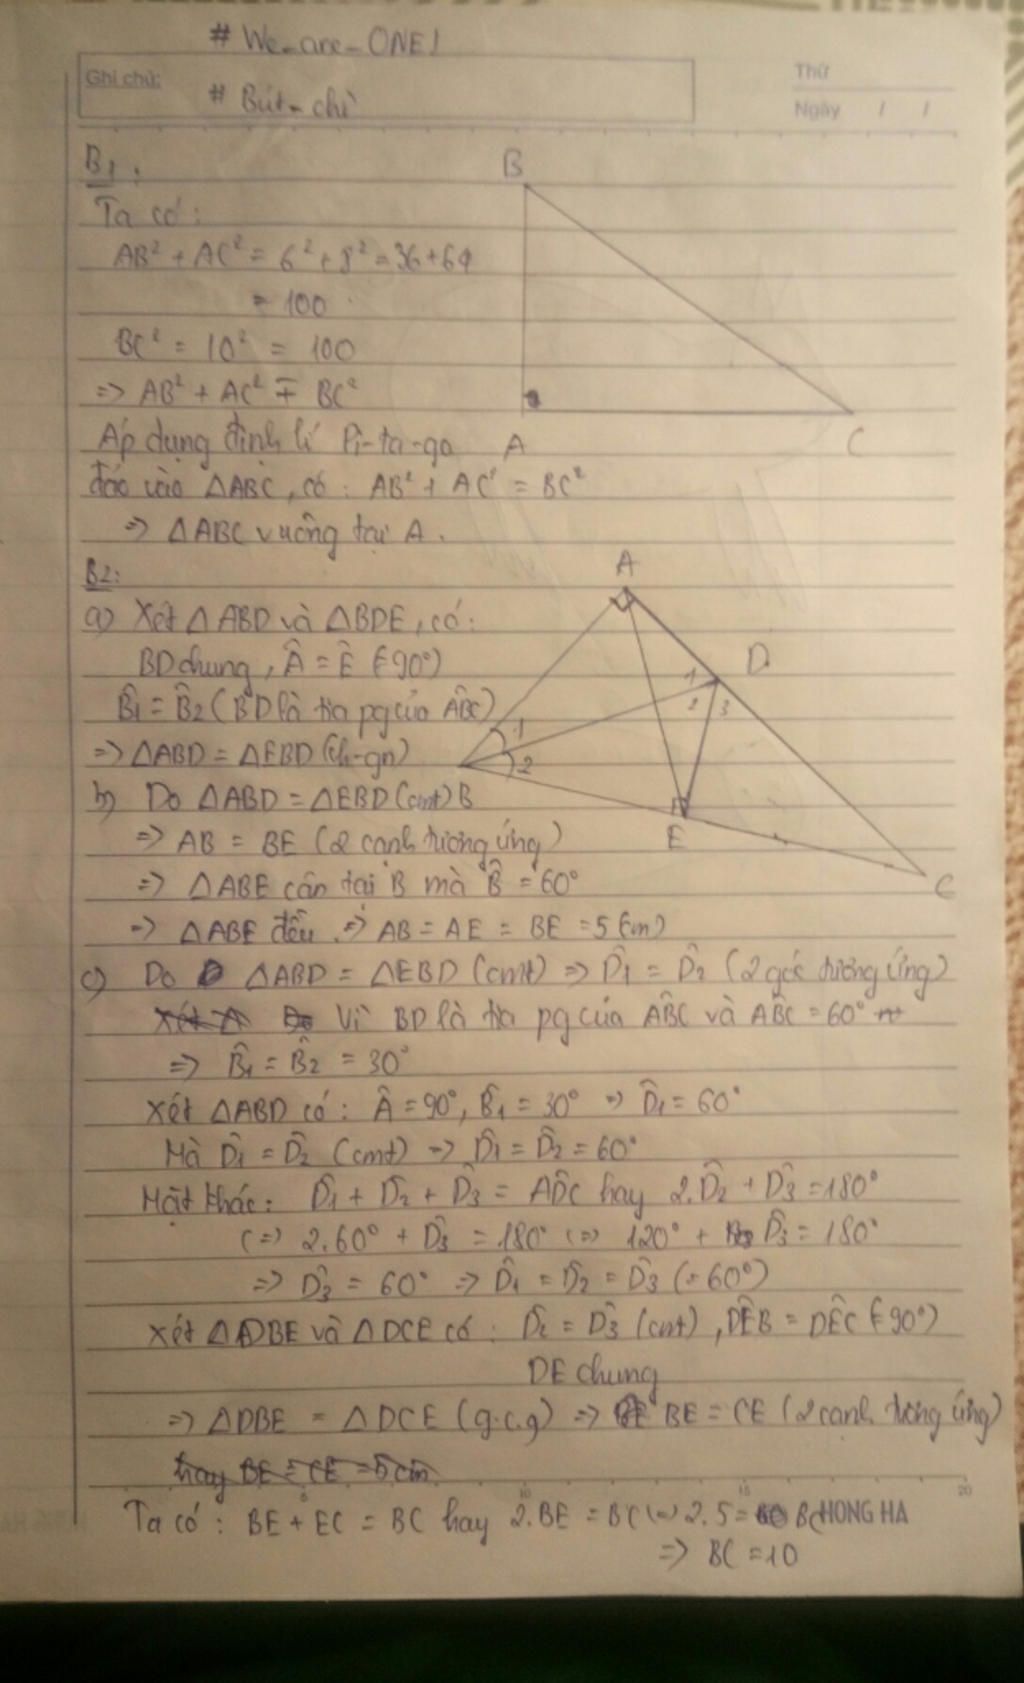 # We-are-ONE!
Ghi chú:
# Bút-chì
Thứ
Ngày / /
B1:
Ta có:
AB² + AC² = 6² + 8² = 36 + 64
= 100
BC² = 10² = 100
=> AB² + AC² = BC²
Áp dụng định lí Pi-ta-go
đảo vào ΔABC, có: AB² + AC² = BC²
=> ΔABC vuông tại A.
B
A
C
B2:
a) Xét ΔABD và ΔBDE, có:
BD chung, Â = Ê (=90°)
B̂1 = B̂2 (BD là tia pg của AB̂C)
=> ΔABD = ΔEBD (ch-gn)
A
D
1
2
3
1
2
B
E
C
b) Do ΔABD = ΔEBD (cmt)
=> AB = BE (2 cạnh tương ứng)
=> ΔABE cân tại B mà B̂ = 60°
=> ΔABE đều => AB = AE = BE = 5 (cm)
c) Do ΔABD = ΔEBD (cmt) => D̂1 = D̂2 (2 góc tương ứng)
Vì BD là tia pg của AB̂C và AB̂C = 60°
=> B̂1 = B̂2 = 30°
Xét ΔABD có: Â = 90°, B̂1 = 30° => D̂1 = 60°
Mà D̂1 = D̂2 (cmt) => D̂1 = D̂2 = 60°
Mặt khác: D̂1 + D̂2 + D̂3 = AD̂C hay 2.D̂2 + D̂3 = 180°
(=> 2.60° + D̂3 = 180° (=> 120° + D̂3 = 180°
=> D̂3 = 60° => D̂1 = D̂2 = D̂3 (=60°)
Xét ΔDBE và ΔDCE có: D̂2 = D̂3 (cmt), DÊB = DÊC (=90°)
DE chung
=> ΔDBE = ΔDCE (g.c.g) => BE = CE (2 cạnh tương ứng)
hay BE = CE = 5 cm
10 15 20
Ta có: BE + EC = BC hay 2.BE = BC (=> 2.5 = BC
HONG HA
=> BC = 10